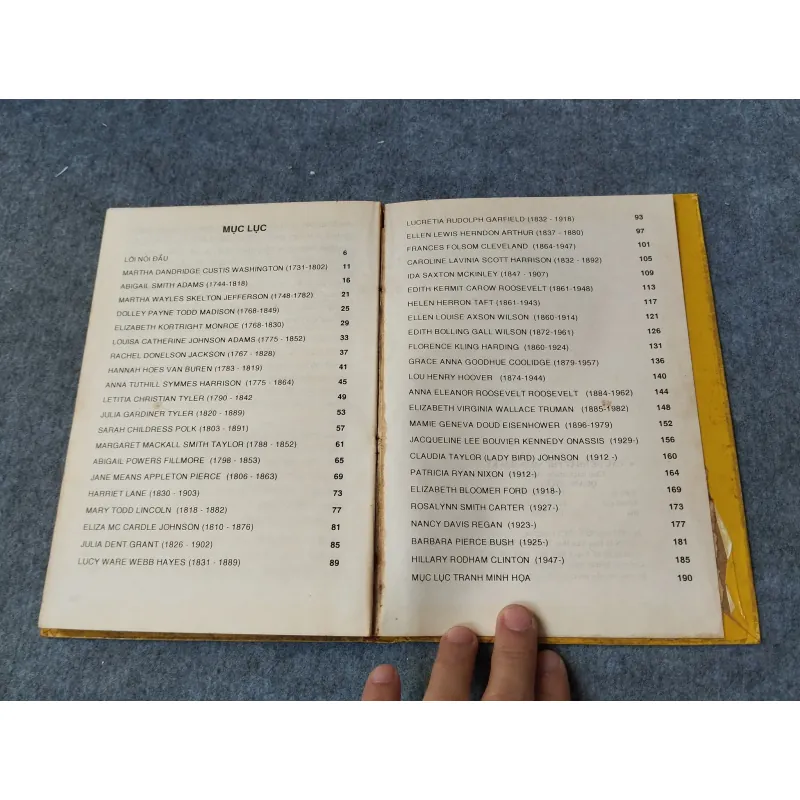 MỤC LỤC
LỜI NÓI ĐẦU 6
MARTHA DANDRIDGE CUSTIS WASHINGTON (1731-1802) 11
ABIGAIL SMITH ADAMS (1744-1818) 16
MARTHA WAYLES SKELTON JEFFERSON (1748-1782) 21
DOLLEY PAYNE TODD MADISON (1768-1849) 25
ELIZABETH KORTRIGHT MONROE (1768-1830) 29
LOUISA CATHERINE JOHNSON ADAMS (1775 - 1852) 33
RACHEL DONELSON JACKSON (1767 - 1828) 37
HANNAH HOES VAN BUREN (1783 - 1819) 41
ANNA TUTHILL SYMMES HARRISON (1775 - 1864) 45
LETITIA CHRISTIAN TYLER (1790 - 1842 49
JULIA GARDINER TYLER (1820 - 1889) 53
SARAH CHILDRESS POLK (1803 - 1891) 57
MARGARET MACKALL SMITH TAYLOR (1788 - 1852) 61
ABIGAIL POWERS FILLMORE (1798 - 1853) 65
JANE MEANS APPLETON PIERCE (1806 - 1863) 69
HARRIET LANE (1830 - 1903) 73
MARY TODD LINCOLN (1818 - 1882) 77
ELIZA MC CARDLE JOHNSON (1810 - 1876) 81
JULIA DENT GRANT (1826 - 1902) 85
LUCY WARE WEBB HAYES (1831 - 1889) 89
LUCRETIA RUDOLPH GARFIELD (1832 - 1918) 93
ELLEN LEWIS HERNDON ARTHUR (1837 - 1880) 97
FRANCES FOLSOM CLEVELAND (1864-1947) 101
CAROLINE LAVINIA SCOTT HARRISON (1832 - 1892) 105
IDA SAXTON MCKINLEY (1847 - 1907) 109
EDITH KERMIT CAROW ROOSEVELT (1861-1948) 113
HELEN HERRON TAFT (1861-1943) 117
ELLEN LOUISE AXSON WILSON (1860-1914) 121
EDITH BOLLING GALL WILSON (1872-1961) 126
FLORENCE KLING HARDING (1860-1924) 131
GRACE ANNA GOODHUE COOLIDGE (1879-1957) 136
LOU HENRY HOOVER (1874-1944) 140
ANNA ELEANOR ROOSEVELT ROOSEVELT (1884-1962) 144
ELIZABETH VIRGINIA WALLACE TRUMAN (1885-1982) 148
MAMIE GENEVA DOUD EISENHOWER (1896-1979) 152
JACQUELINE LEE BOUVIER KENNEDY ONASSIS (1929-) 156
CLAUDIA TAYLOR (LADY BIRD) JOHNSON (1912 -) 160
PATRICIA RYAN NIXON (1912-) 164
ELIZABETH BLOOMER FORD (1918-) 169
ROSALYNN SMITH CARTER (1927-) 173
NANCY DAVIS REGAN (1923-) 177
BARBARA PIERCE BUSH (1925-) 181
HILLARY RODHAM CLINTON (1947-) 185
MỤC LỤC TRANH MINH HỌA 190